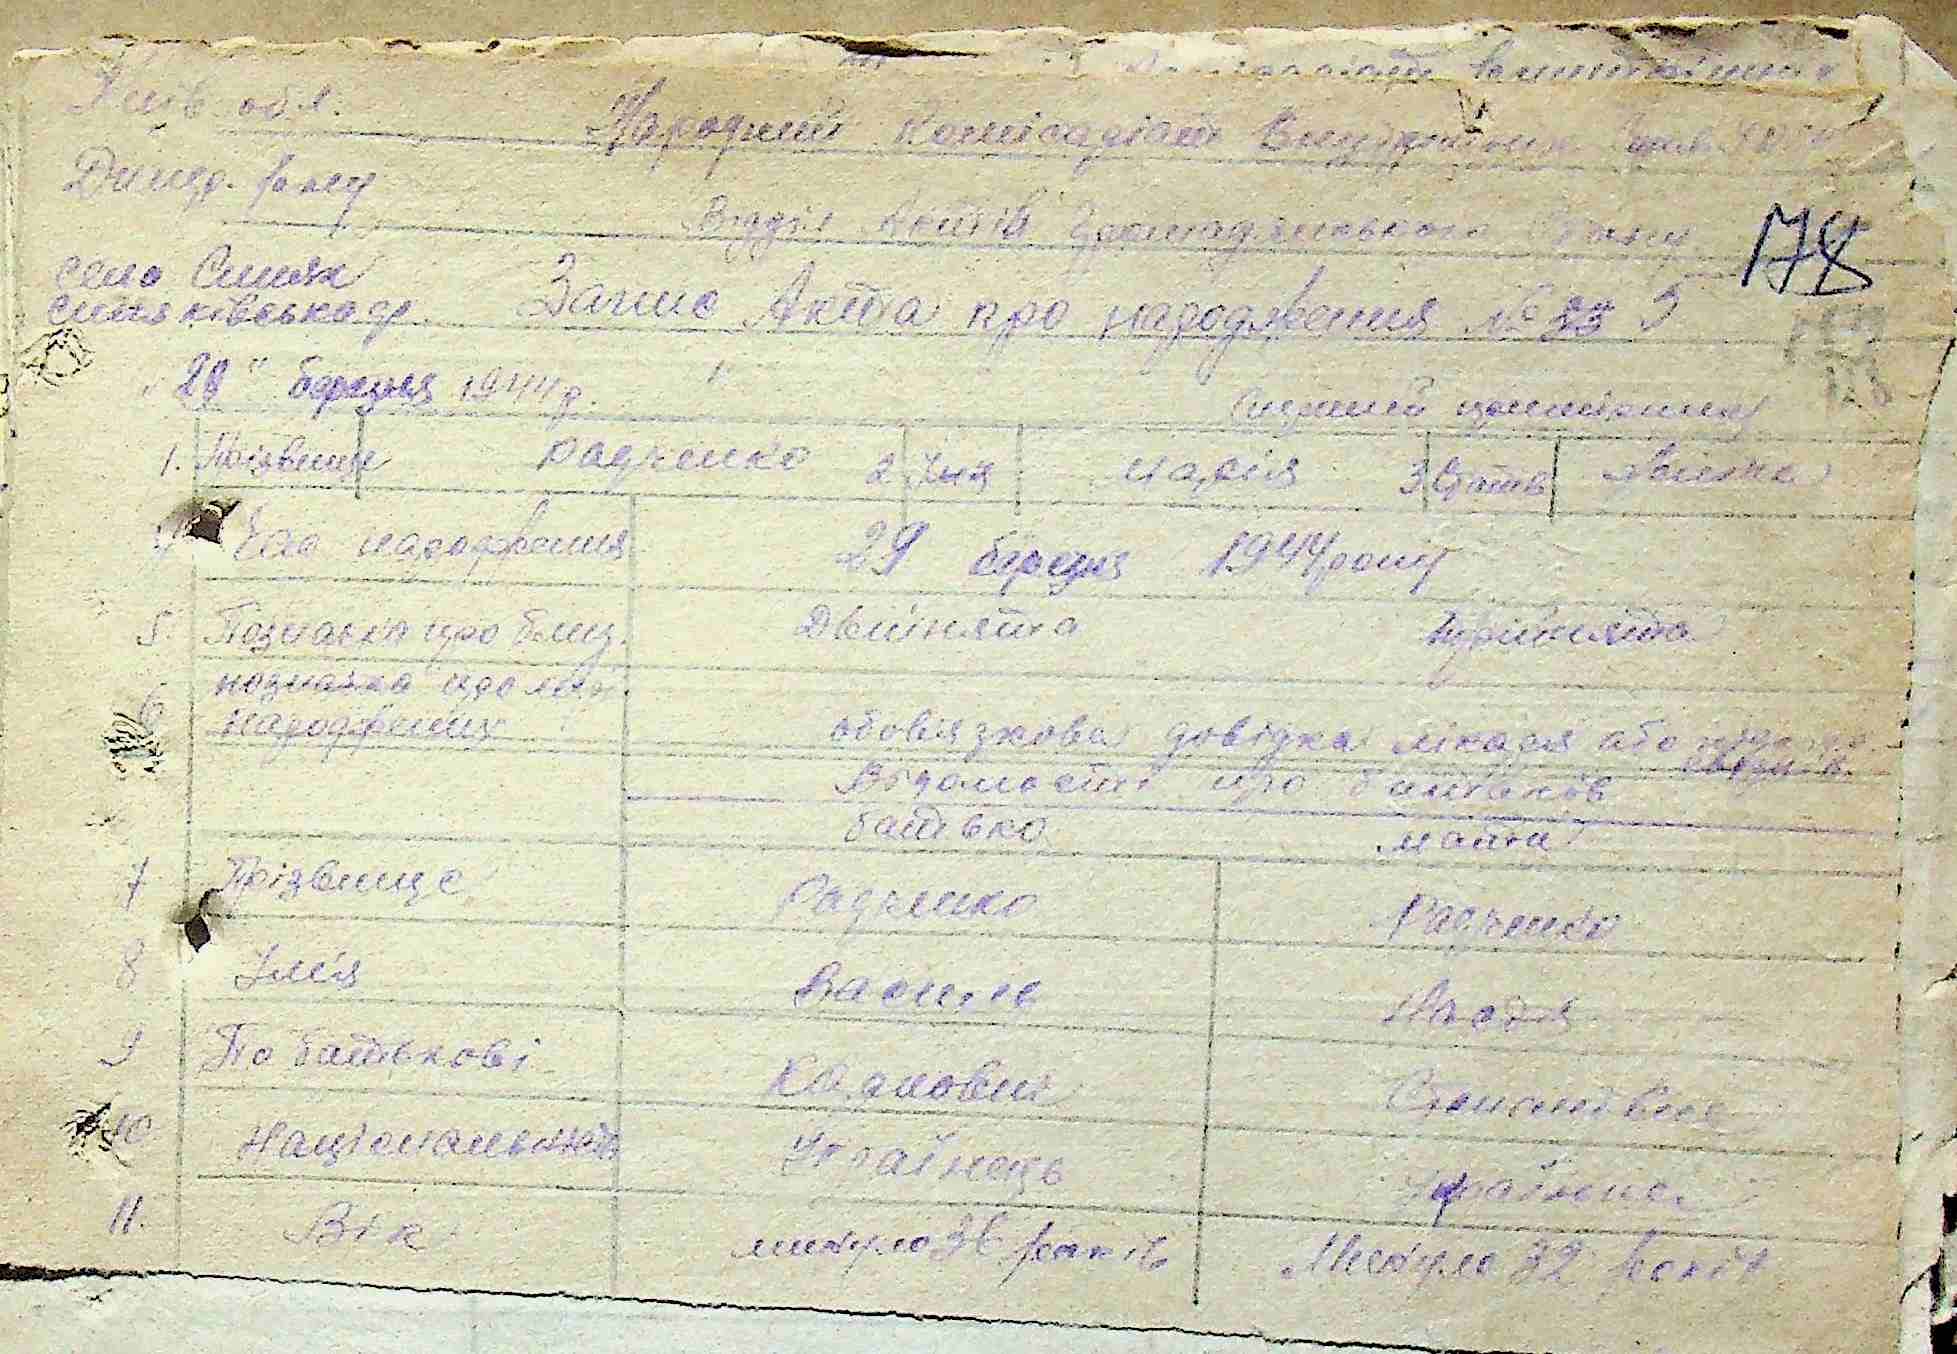 Київ обл.
Народний Комісаріат Внутрішніх Справ
Димер. р-ну
Відділ Актів Громадянського Стану
178
село Синяк
Синяківська
Запис Акта про народження № 5
"28" березня 1944 р.
перший примірник
1. Прізвище Радченко 2 Імя Марія 3 Стать жіноча
4 Час народження 29 березня 1944 року
5. Позначка про близ. Двійнята Трійнята
позначка про мертв.
6 народжених обовязкова довідка лікаря або
Відомості про батьків
батько мати
7 Прізвище Радченко Радченко
8 Імя Василь
9 По батькові Карпович
10 Національність Українець Українка
11. Вік минуло 36 років Минуло 32 років